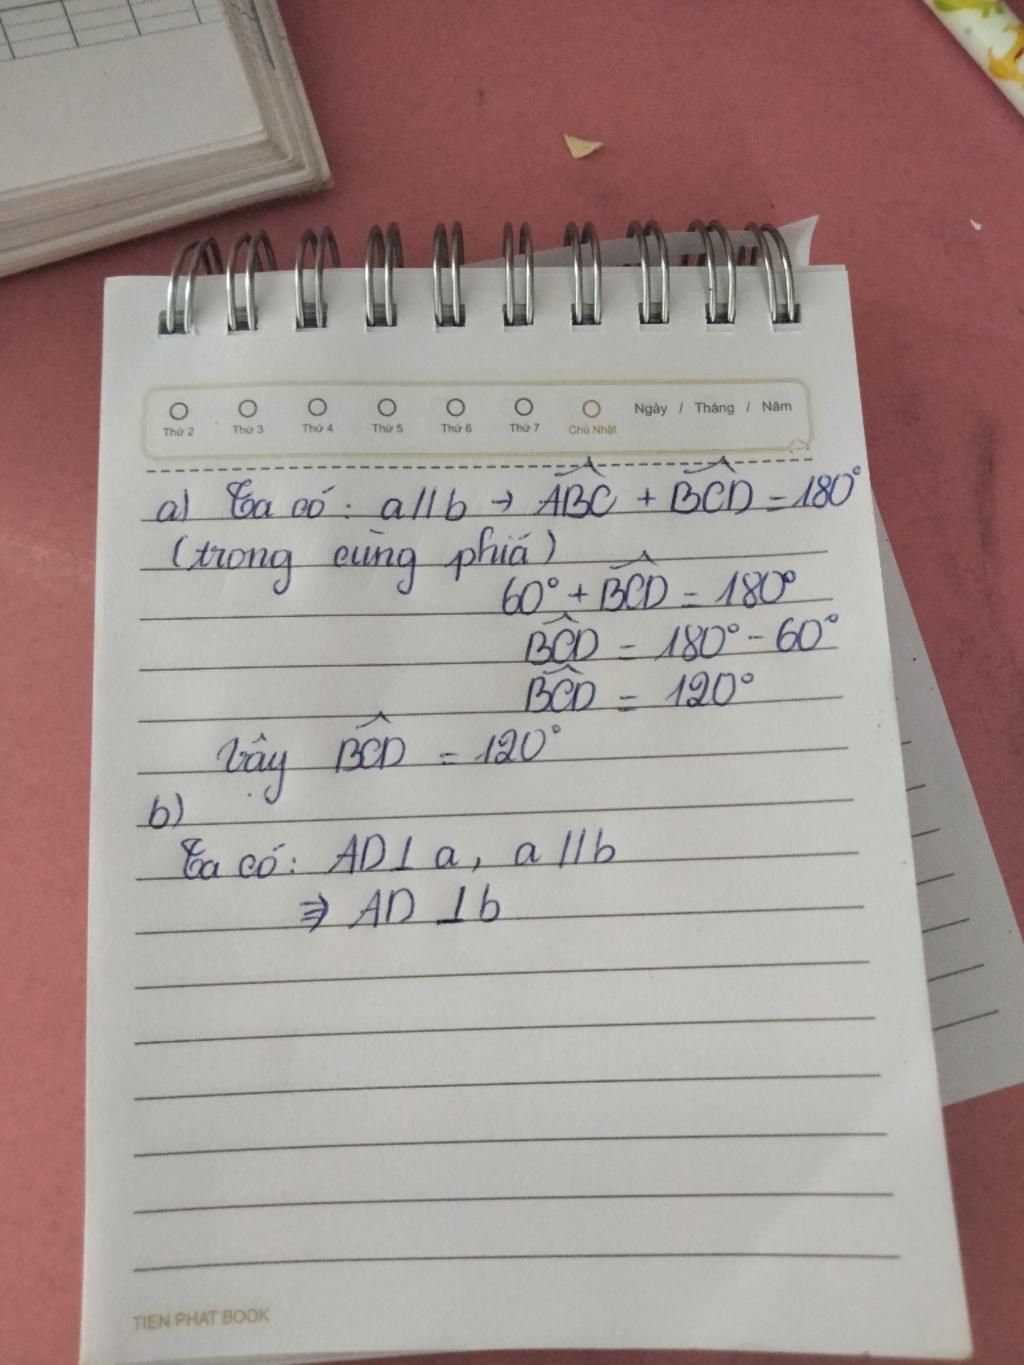 Thứ 2 Thứ 3 Thứ 4 Thứ 5 Thứ 6 Thứ 7 Chủ Nhật Ngày / Tháng / Năm
a) Ta có: a//b → ABC + BCD = 180°
(trong cùng phiá)
60° + BCD = 180°
BCD = 180° - 60°
BCD = 120°
Vây BCD = 120°
b)
Ta có: AD ⊥ a, a // b
⇒ AD ⊥ b
TIEN PHAT BOOK